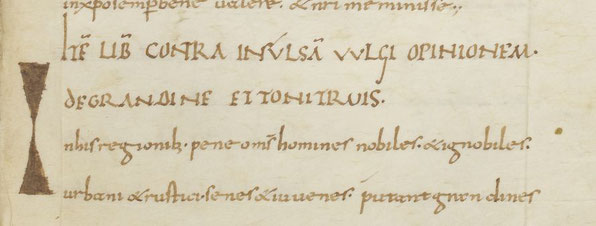 inxpo semp bene valere · & nri meminisse ;,
Ite lib contra insulsā vulgi opinionem ·
de grandine et tonitruis ·
In his regionib; pene oms homines nobiles · & ignobiles ·
urbani & rustici · senes & iuvenes · putant grandines